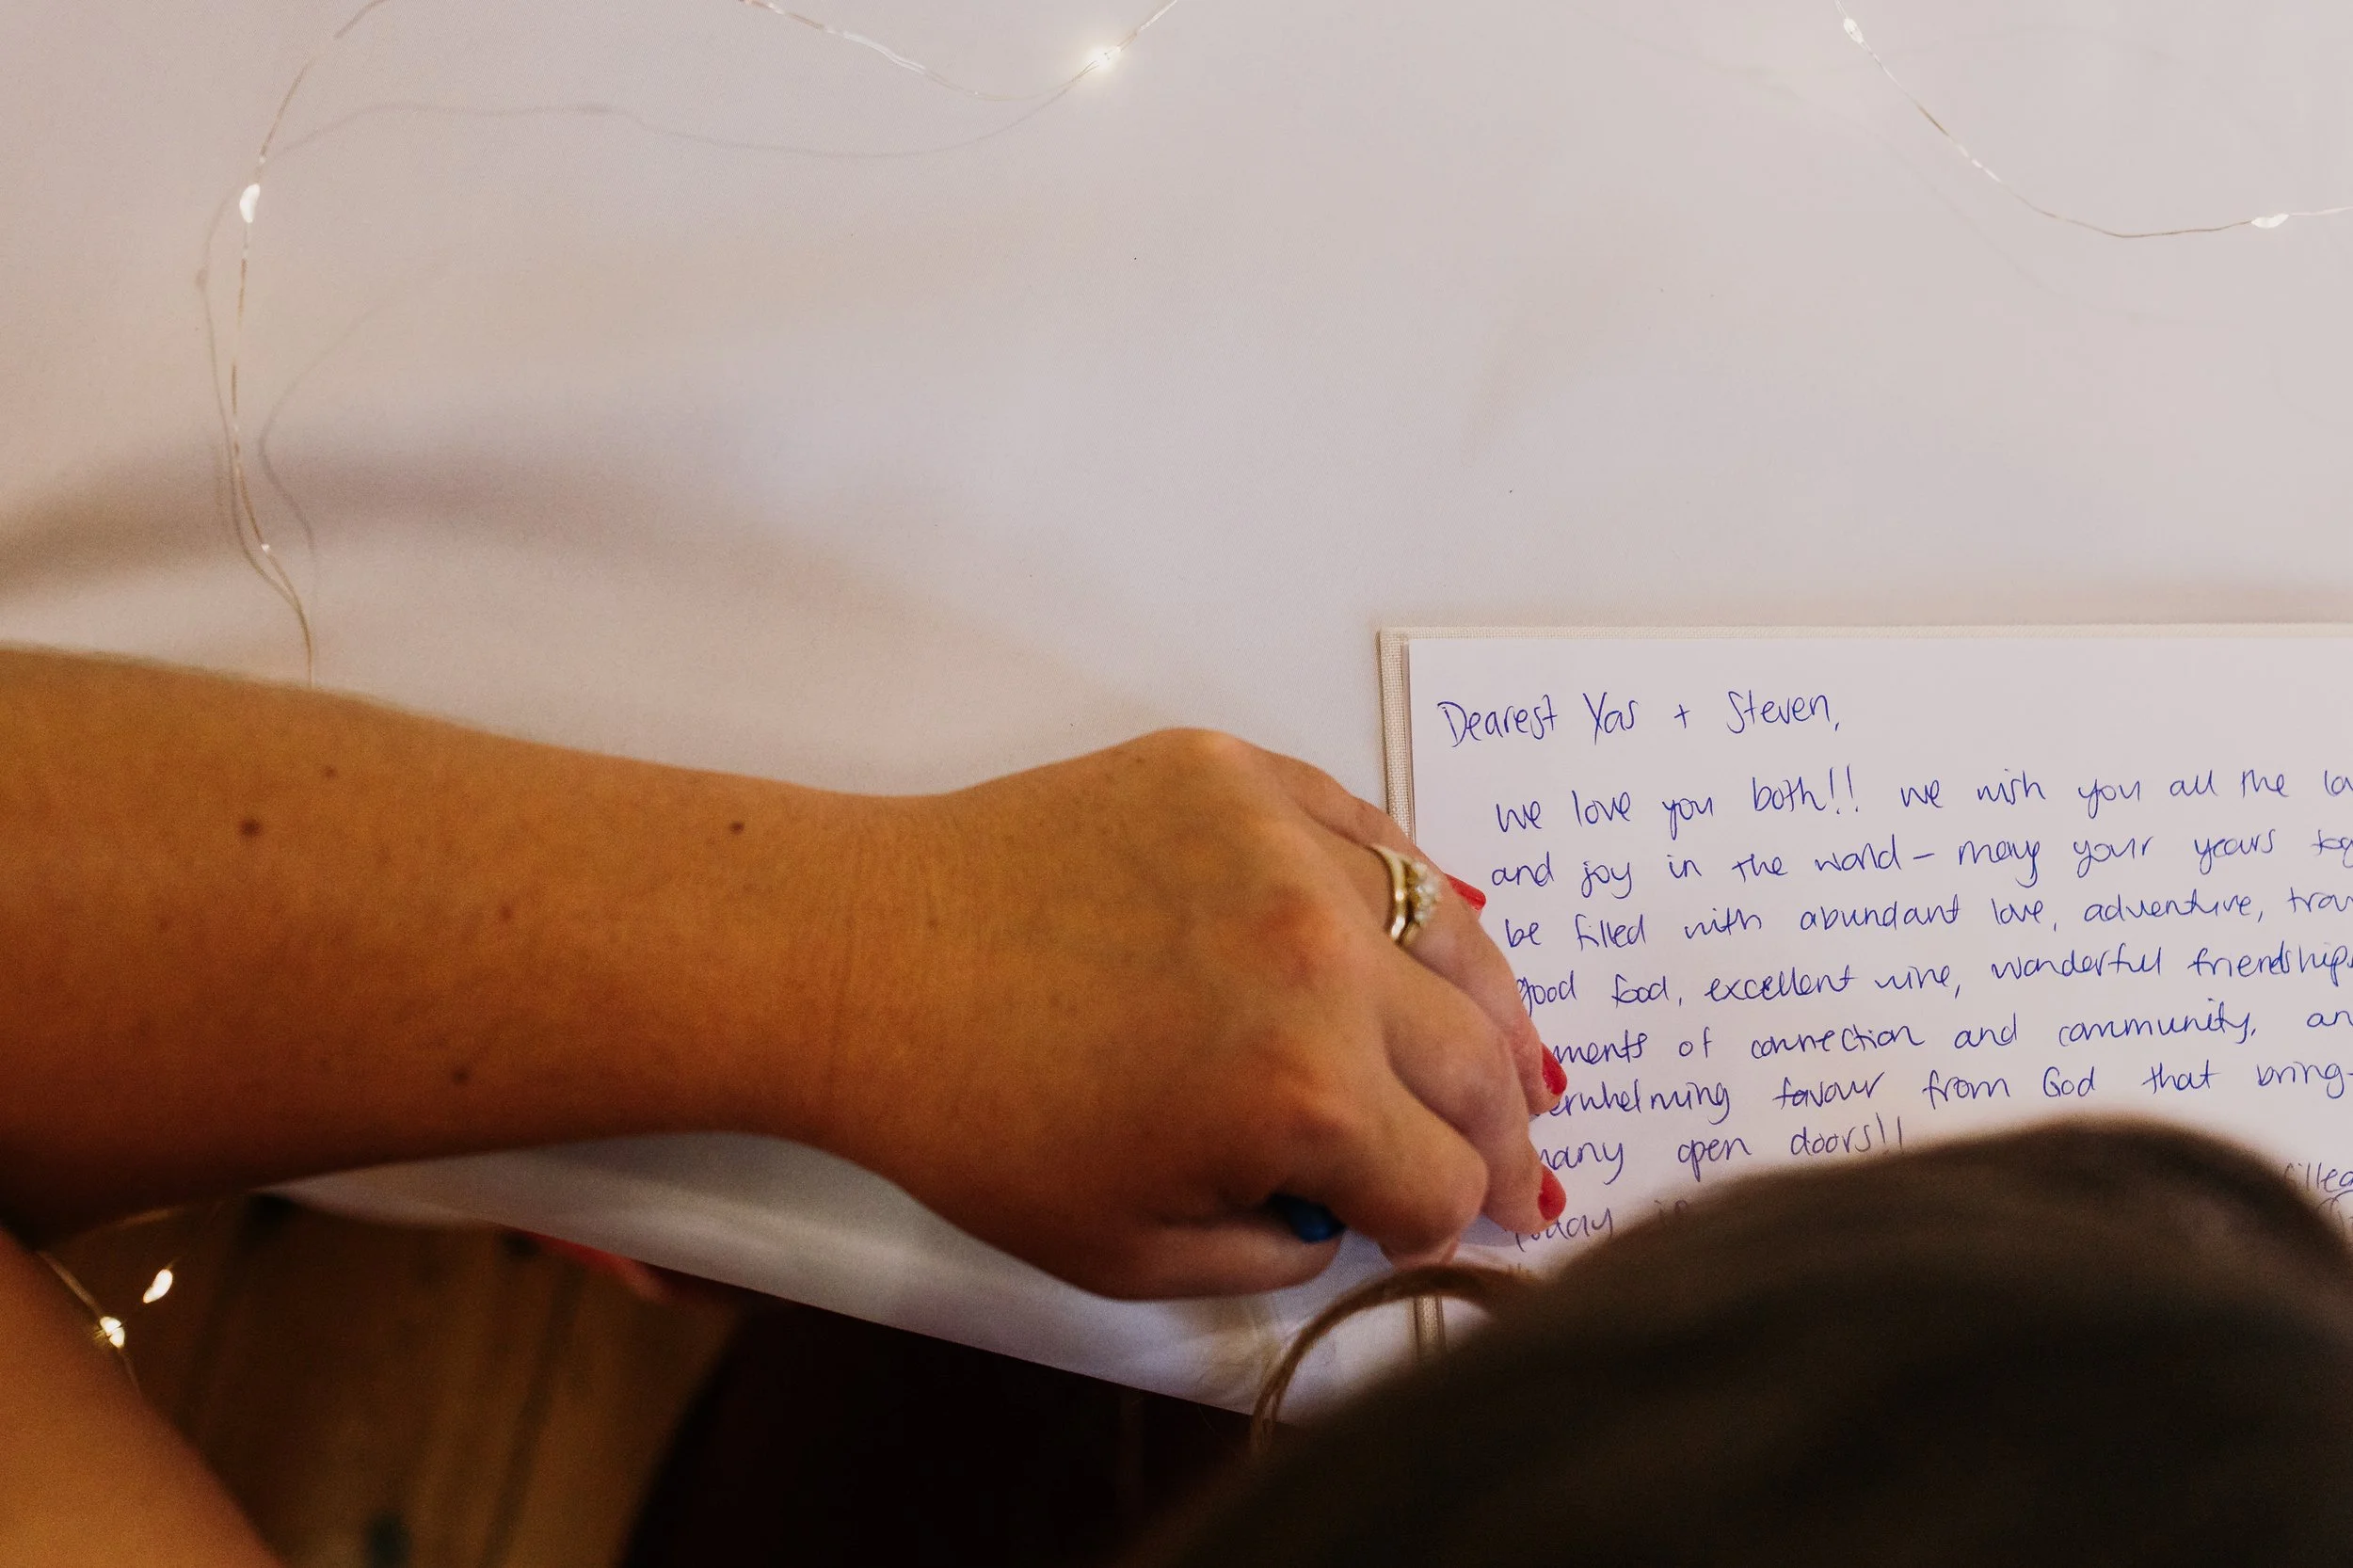 Dearest Yas + Steven,
we love you both!! we wish you all the
and joy in the world - may your years
be filled with abundant love, adventure,
good food, excellent wine, wonderful friendships
of connection and community,
favour from God that bring
many open doors!!